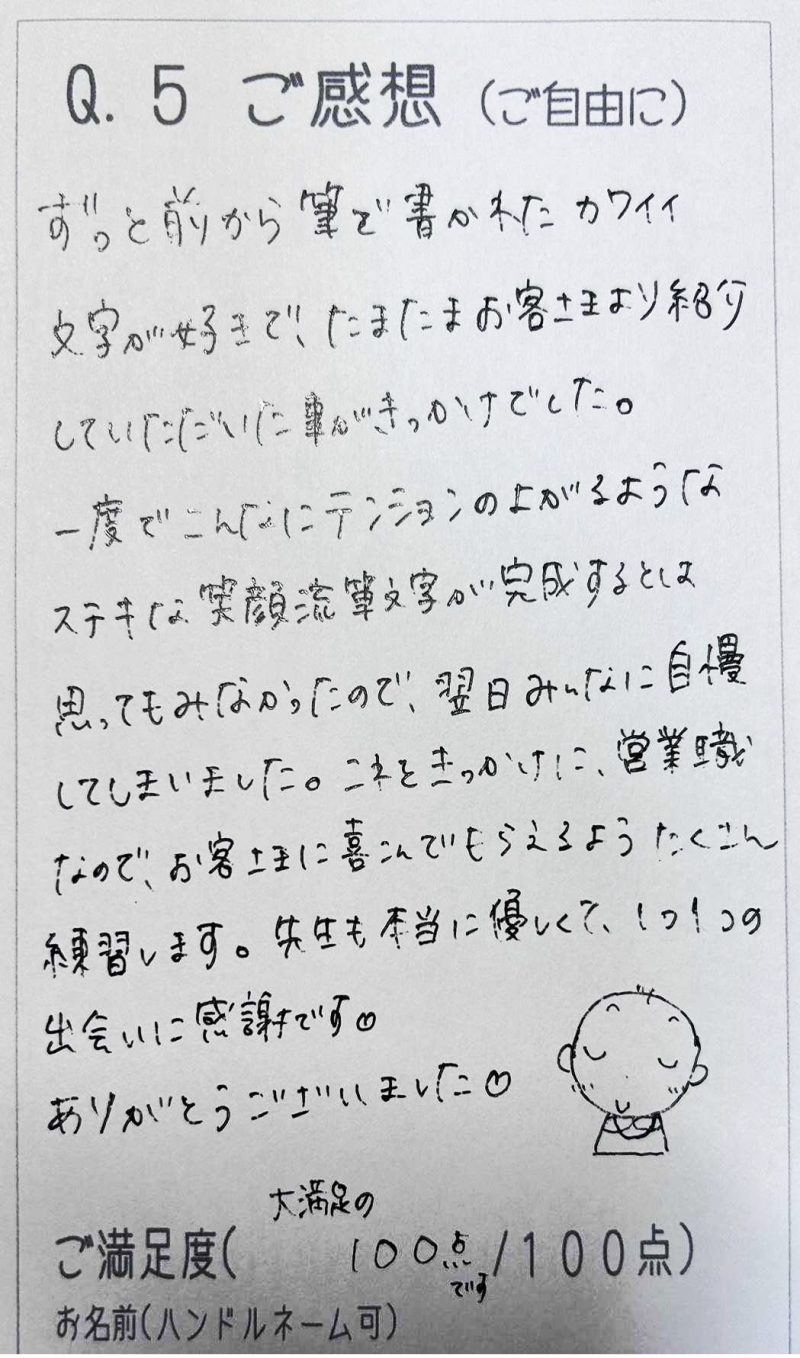 Q.5 ご感想（ご自由に）
ずっと前から筆で書かれたカワイイ
文字が好きで、たまたまお客さまより紹介
していただいた事がきっかけでした。
一度でこんなにテンションの上がるような
ステキな笑顔流筆文字が完成するとは
思ってもみなかったので、翌日みんなに自慢
してしまいました。これをきっかけに、営業職
なので、お客さまに喜こんでもらえるようたくさん
練習します。先生も本当に優しくて、1つ1つの
出会いに感謝です♡
ありがとうございました♡
大満足の
ご満足度(100点です/100点)
お名前(ハンドルネーム可)